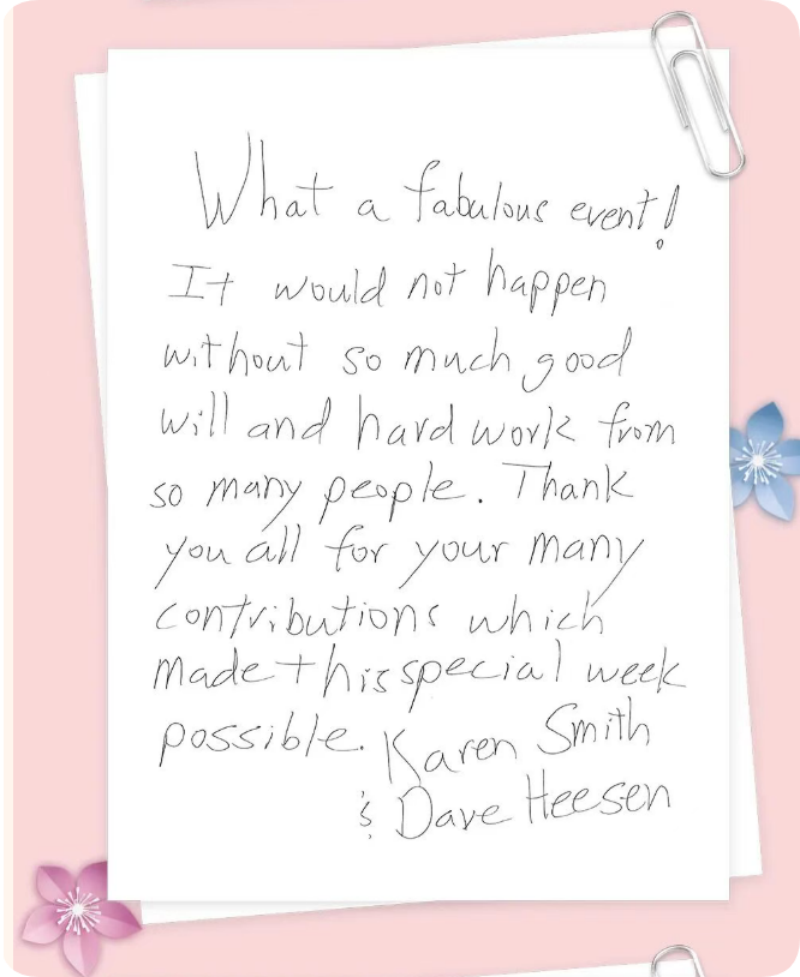 What a fabulous event!
It would not happen
without so much good
will and hard work from
so many people. Thank
you all for your many
contributions which
made this special week
possible. Karen Smith
& Dave Heesen